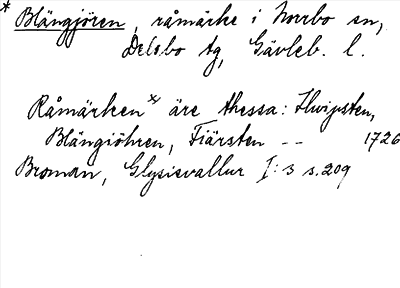 * Blängjören, råmärke i Norrbo sn,
Delsbo tg, Gävleb. l.
Råmärken x) äre thessa: Hwijsten,
Blängiöhren, Fiärsten -- 1726
Broman, Glysisvallur I:3 s.209